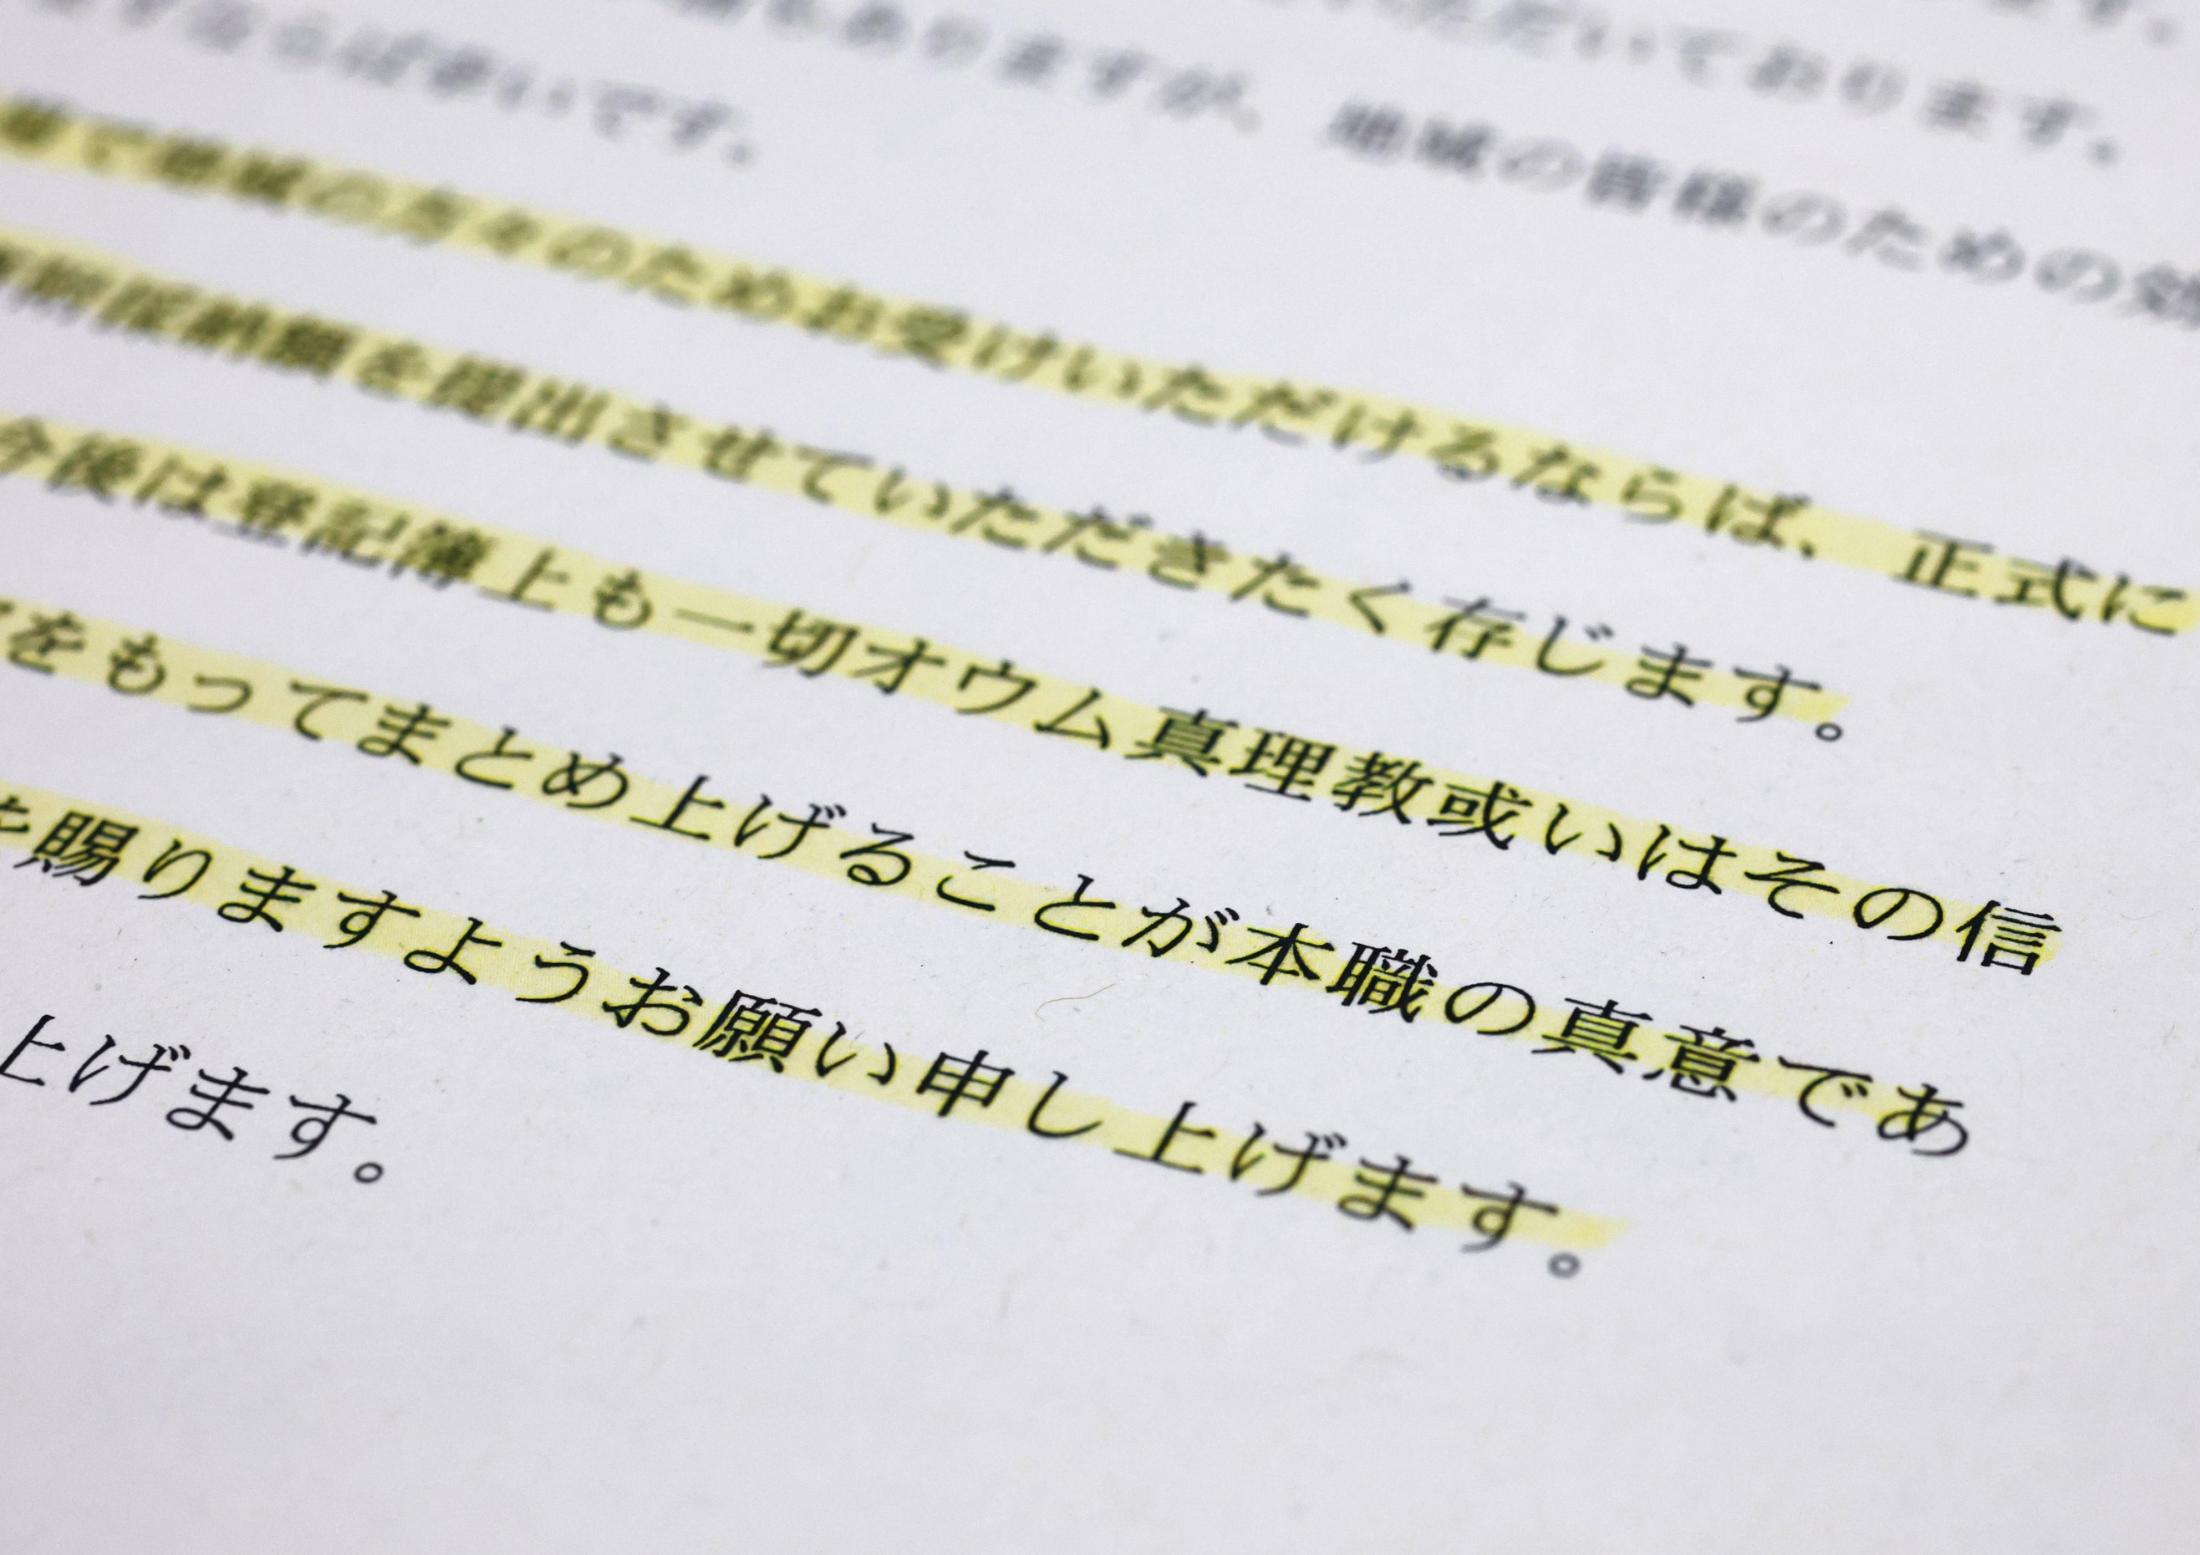 ます。
ただいております。
もありますが、地域の皆様のための効
ならば幸いです。
で地域の方々のためお受けいただけるならば、正式に
を提出させていただきたく存じます。
今後は登記簿上も一切オウム真理教或いはその信
をもってまとめ上げることが本職の真意であ
を賜りますようお願い申し上げます。
上げます。